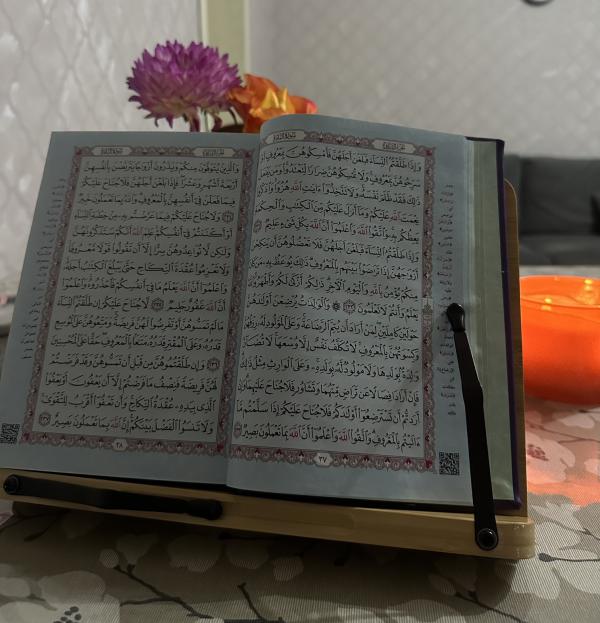 سُورَةُ البَقَرَةِ الجُزءُ الثَّانِي
وَإِذَا طَلَّقْتُمُ ٱلنِّسَآءَ فَبَلَغْنَ أَجَلَهُنَّ فَأَمْسِكُوهُنَّ بِمَعْرُوفٍ أَوْ
سَرِّحُوهُنَّ بِمَعْرُوفٍ وَلَا تُمْسِكُوهُنَّ ضِرَارًا لِّتَعْتَدُوا۟ وَمَن يَفْعَلْ
ذَٰلِكَ فَقَدْ ظَلَمَ نَفْسَهُۥ وَلَا تَتَّخِذُوٓا۟ ءَايَٰتِ ٱللَّهِ هُزُوًا وَٱذْكُرُوا۟
نِعْمَتَ ٱللَّهِ عَلَيْكُمْ وَمَآ أَنزَلَ عَلَيْكُم مِّنَ ٱلْكِتَٰبِ وَٱلْحِكْمَةِ
يَعِظُكُم بِهِۦ وَٱتَّقُوا۟ ٱللَّهَ وَٱعْلَمُوٓا۟ أَنَّ ٱللَّهَ بِكُلِّ شَىْءٍ عَلِيمٌ ٢٣١
وَإِذَا طَلَّقْتُمُ ٱلنِّسَآءَ فَبَلَغْنَ أَجَلَهُنَّ فَلَا تَعْضُلُوهُنَّ أَن يَنكِحْنَ
أَزْوَٰجَهُنَّ إِذَا تَرَٰضَوْا۟ بَيْنَهُم بِٱلْمَعْرُوفِ ذَٰلِكَ يُوعَظُ بِهِۦ مَن كَانَ
مِنكُمْ يُؤْمِنُ بِٱللَّهِ وَٱلْيَوْمِ ٱلْءَاخِرِ ذَٰلِكُمْ أَزْكَىٰ لَكُمْ وَأَطْهَرُ وَٱللَّهُ
يَعْلَمُ وَأَنتُمْ لَا تَعْلَمُونَ ٢٣٢ وَٱلْوَٰلِدَٰتُ يُرْضِعْنَ أَوْلَٰدَهُنَّ
حَوْلَيْنِ كَامِلَيْنِ لِمَنْ أَرَادَ أَن يُتِمَّ ٱلرَّضَاعَةَ وَعَلَى ٱلْمَوْلُودِ لَهُۥ رِزْقُهُنَّ
وَكِسْوَتُهُنَّ بِٱلْمَعْرُوفِ لَا تُكَلَّفُ نَفْسٌ إِلَّا وُسْعَهَا لَا تُضَآرَّ
وَٰلِدَةٌۢ بِوَلَدِهَا وَلَا مَوْلُودٌ لَّهُۥ بِوَلَدِهِۦ وَعَلَى ٱلْوَارِثِ مِثْلُ ذَٰلِكَ
فَإِنْ أَرَادَا فِصَالًا عَن تَرَاضٍ مِّنْهُمَا وَتَشَاوُرٍ فَلَا جُنَاحَ عَلَيْهِمَا وَإِنْ
أَرَدتُّمْ أَن تَسْتَرْضِعُوٓا۟ أَوْلَٰدَكُمْ فَلَا جُنَاحَ عَلَيْكُمْ إِذَا سَلَّمْتُم مَّآ
ءَاتَيْتُم بِٱلْمَعْرُوفِ وَٱتَّقُوا۟ ٱللَّهَ وَٱعْلَمُوٓا۟ أَنَّ ٱللَّهَ بِمَا تَعْمَلُونَ بَصِيرٌ ٢٣٣
٣٧
الجُزءُ الثَّانِي سُورَةُ البَقَرَةِ
وَٱلَّذِينَ يُتَوَفَّوْنَ مِنكُمْ وَيَذَرُونَ أَزْوَٰجًا يَتَرَبَّصْنَ بِأَنفُسِهِنَّ
أَرْبَعَةَ أَشْهُرٍ وَعَشْرًا فَإِذَا بَلَغْنَ أَجَلَهُنَّ فَلَا جُنَاحَ عَلَيْكُمْ
فِيمَا فَعَلْنَ فِىٓ أَنفُسِهِنَّ بِٱلْمَعْرُوفِ وَٱللَّهُ بِمَا تَعْمَلُونَ خَبِيرٌ
٢٣٤ وَلَا جُنَاحَ عَلَيْكُمْ فِيمَا عَرَّضْتُم بِهِۦ مِنْ خِطْبَةِ ٱلنِّسَآءِ
أَوْ أَكْنَنتُمْ فِىٓ أَنفُسِكُمْ عَلِمَ ٱللَّهُ أَنَّكُمْ سَتَذْكُرُونَهُنَّ
وَلَٰكِن لَّا تُوَاعِدُوهُنَّ سِرًّا إِلَّآ أَن تَقُولُوا۟ قَوْلًا مَّعْرُوفًا
وَلَا تَعْزِمُوا۟ عُقْدَةَ ٱلنِّكَاحِ حَتَّىٰ يَبْلُغَ ٱلْكِتَٰبُ أَجَلَهُۥ
وَٱعْلَمُوٓا۟ أَنَّ ٱللَّهَ يَعْلَمُ مَا فِىٓ أَنفُسِكُمْ فَٱحْذَرُوهُ وَٱعْلَمُوٓا۟
أَنَّ ٱللَّهَ غَفُورٌ حَلِيمٌ ٢٣٥ لَّا جُنَاحَ عَلَيْكُمْ إِن طَلَّقْتُمُ ٱلنِّسَآءَ
مَا لَمْ تَمَسُّوهُنَّ أَوْ تَفْرِضُوا۟ لَهُنَّ فَرِيضَةً وَمَتِّعُوهُنَّ عَلَى ٱلْمُوسِعِ
قَدَرُهُۥ وَعَلَى ٱلْمُقْتِرِ قَدَرُهُۥ مَتَٰعًۢا بِٱلْمَعْرُوفِ حَقًّا عَلَى ٱلْمُحْسِنِينَ
٢٣٦ وَإِن طَلَّقْتُمُوهُنَّ مِن قَبْلِ أَن تَمَسُّوهُنَّ وَقَدْ فَرَضْتُمْ
لَهُنَّ فَرِيضَةً فَنِصْفُ مَا فَرَضْتُمْ إِلَّآ أَن يَعْفُونَ أَوْ يَعْفُوَا۟
ٱلَّذِى بِيَدِهِۦ عُقْدَةُ ٱلنِّكَاحِ وَأَن تَعْفُوٓا۟ أَقْرَبُ لِلتَّقْوَىٰ
وَلَا تَنسَوُا۟ ٱلْفَضْلَ بَيْنَكُمْ إِنَّ ٱللَّهَ بِمَا تَعْمَلُونَ بَصِيرٌ ٢٣٧
٣٨